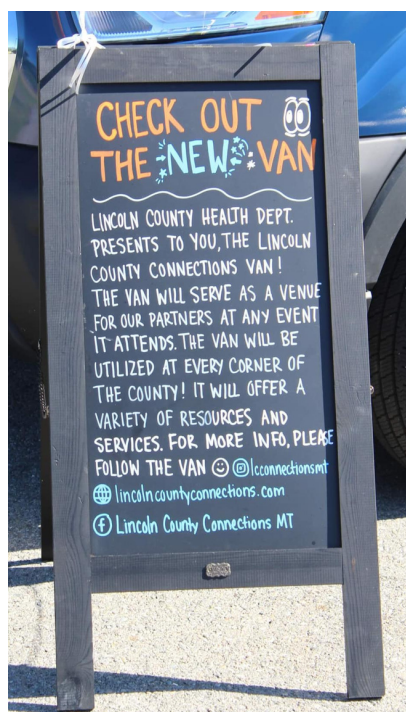 CHECK OUT
THE NEW VAN
LINCOLN COUNTY HEALTH DEPT.
PRESENTS TO YOU, THE LINCOLN
COUNTY CONNECTIONS VAN!
THE VAN WILL SERVE AS A VENUE
FOR OUR PARTNERS AT ANY EVENT
IT ATTENDS. THE VAN WILL BE
UTILIZED AT EVERY CORNER OF
THE COUNTY! IT WILL OFFER A
VARIETY OF RESOURCES AND
SERVICES. FOR MORE INFO, PLEASE
FOLLOW THE VAN lcconnectionsmt
lincolncountyconnections.com
Lincoln County Connections MT